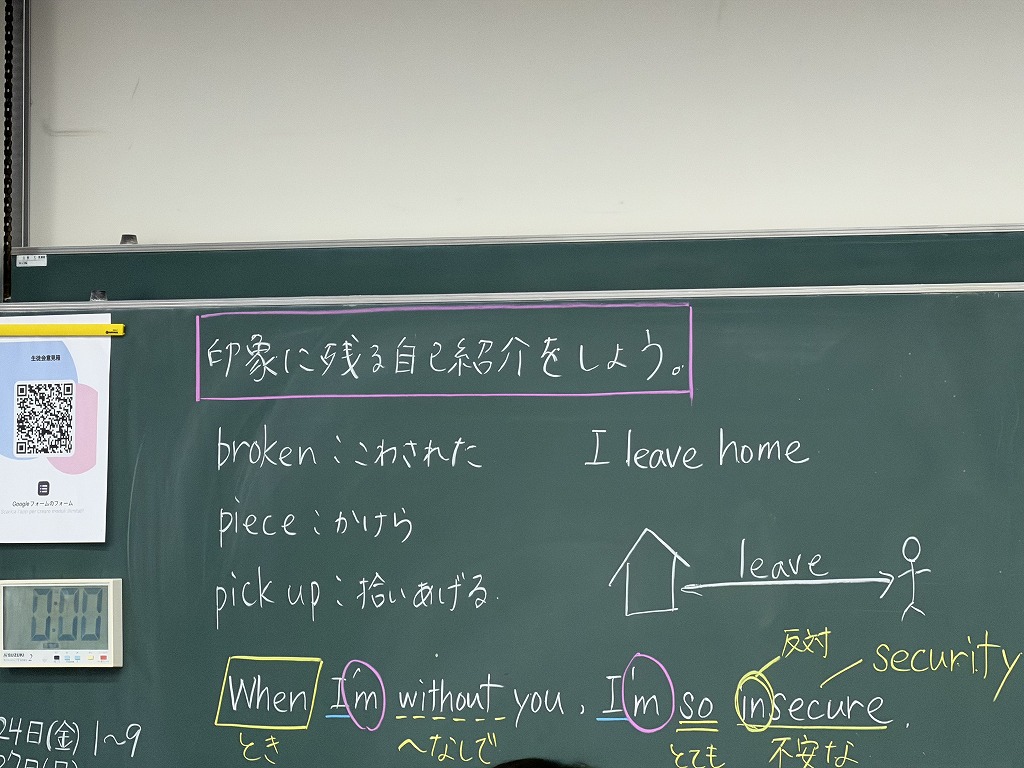 印象に残る自己紹介をしよう。
broken：こわされた
piece：かけら
pick up：拾いあげる
I leave home
leave
反対
security
When I'm without you, I'm so insecure.
とき
〜なしで
とても
不安な
生徒会意見箱
Googleフォームのフォーム
0:00
SUZUKI
24日(金) 1〜9